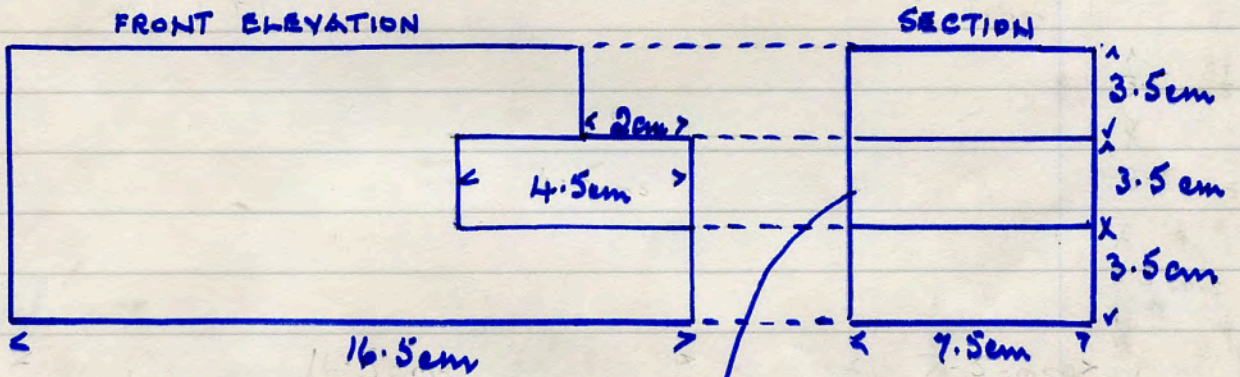 FRONT ELEVATION
SECTION
3.5cm
2cm
4.5cm
3.5 cm
3.5cm
16.5cm
7.5cm